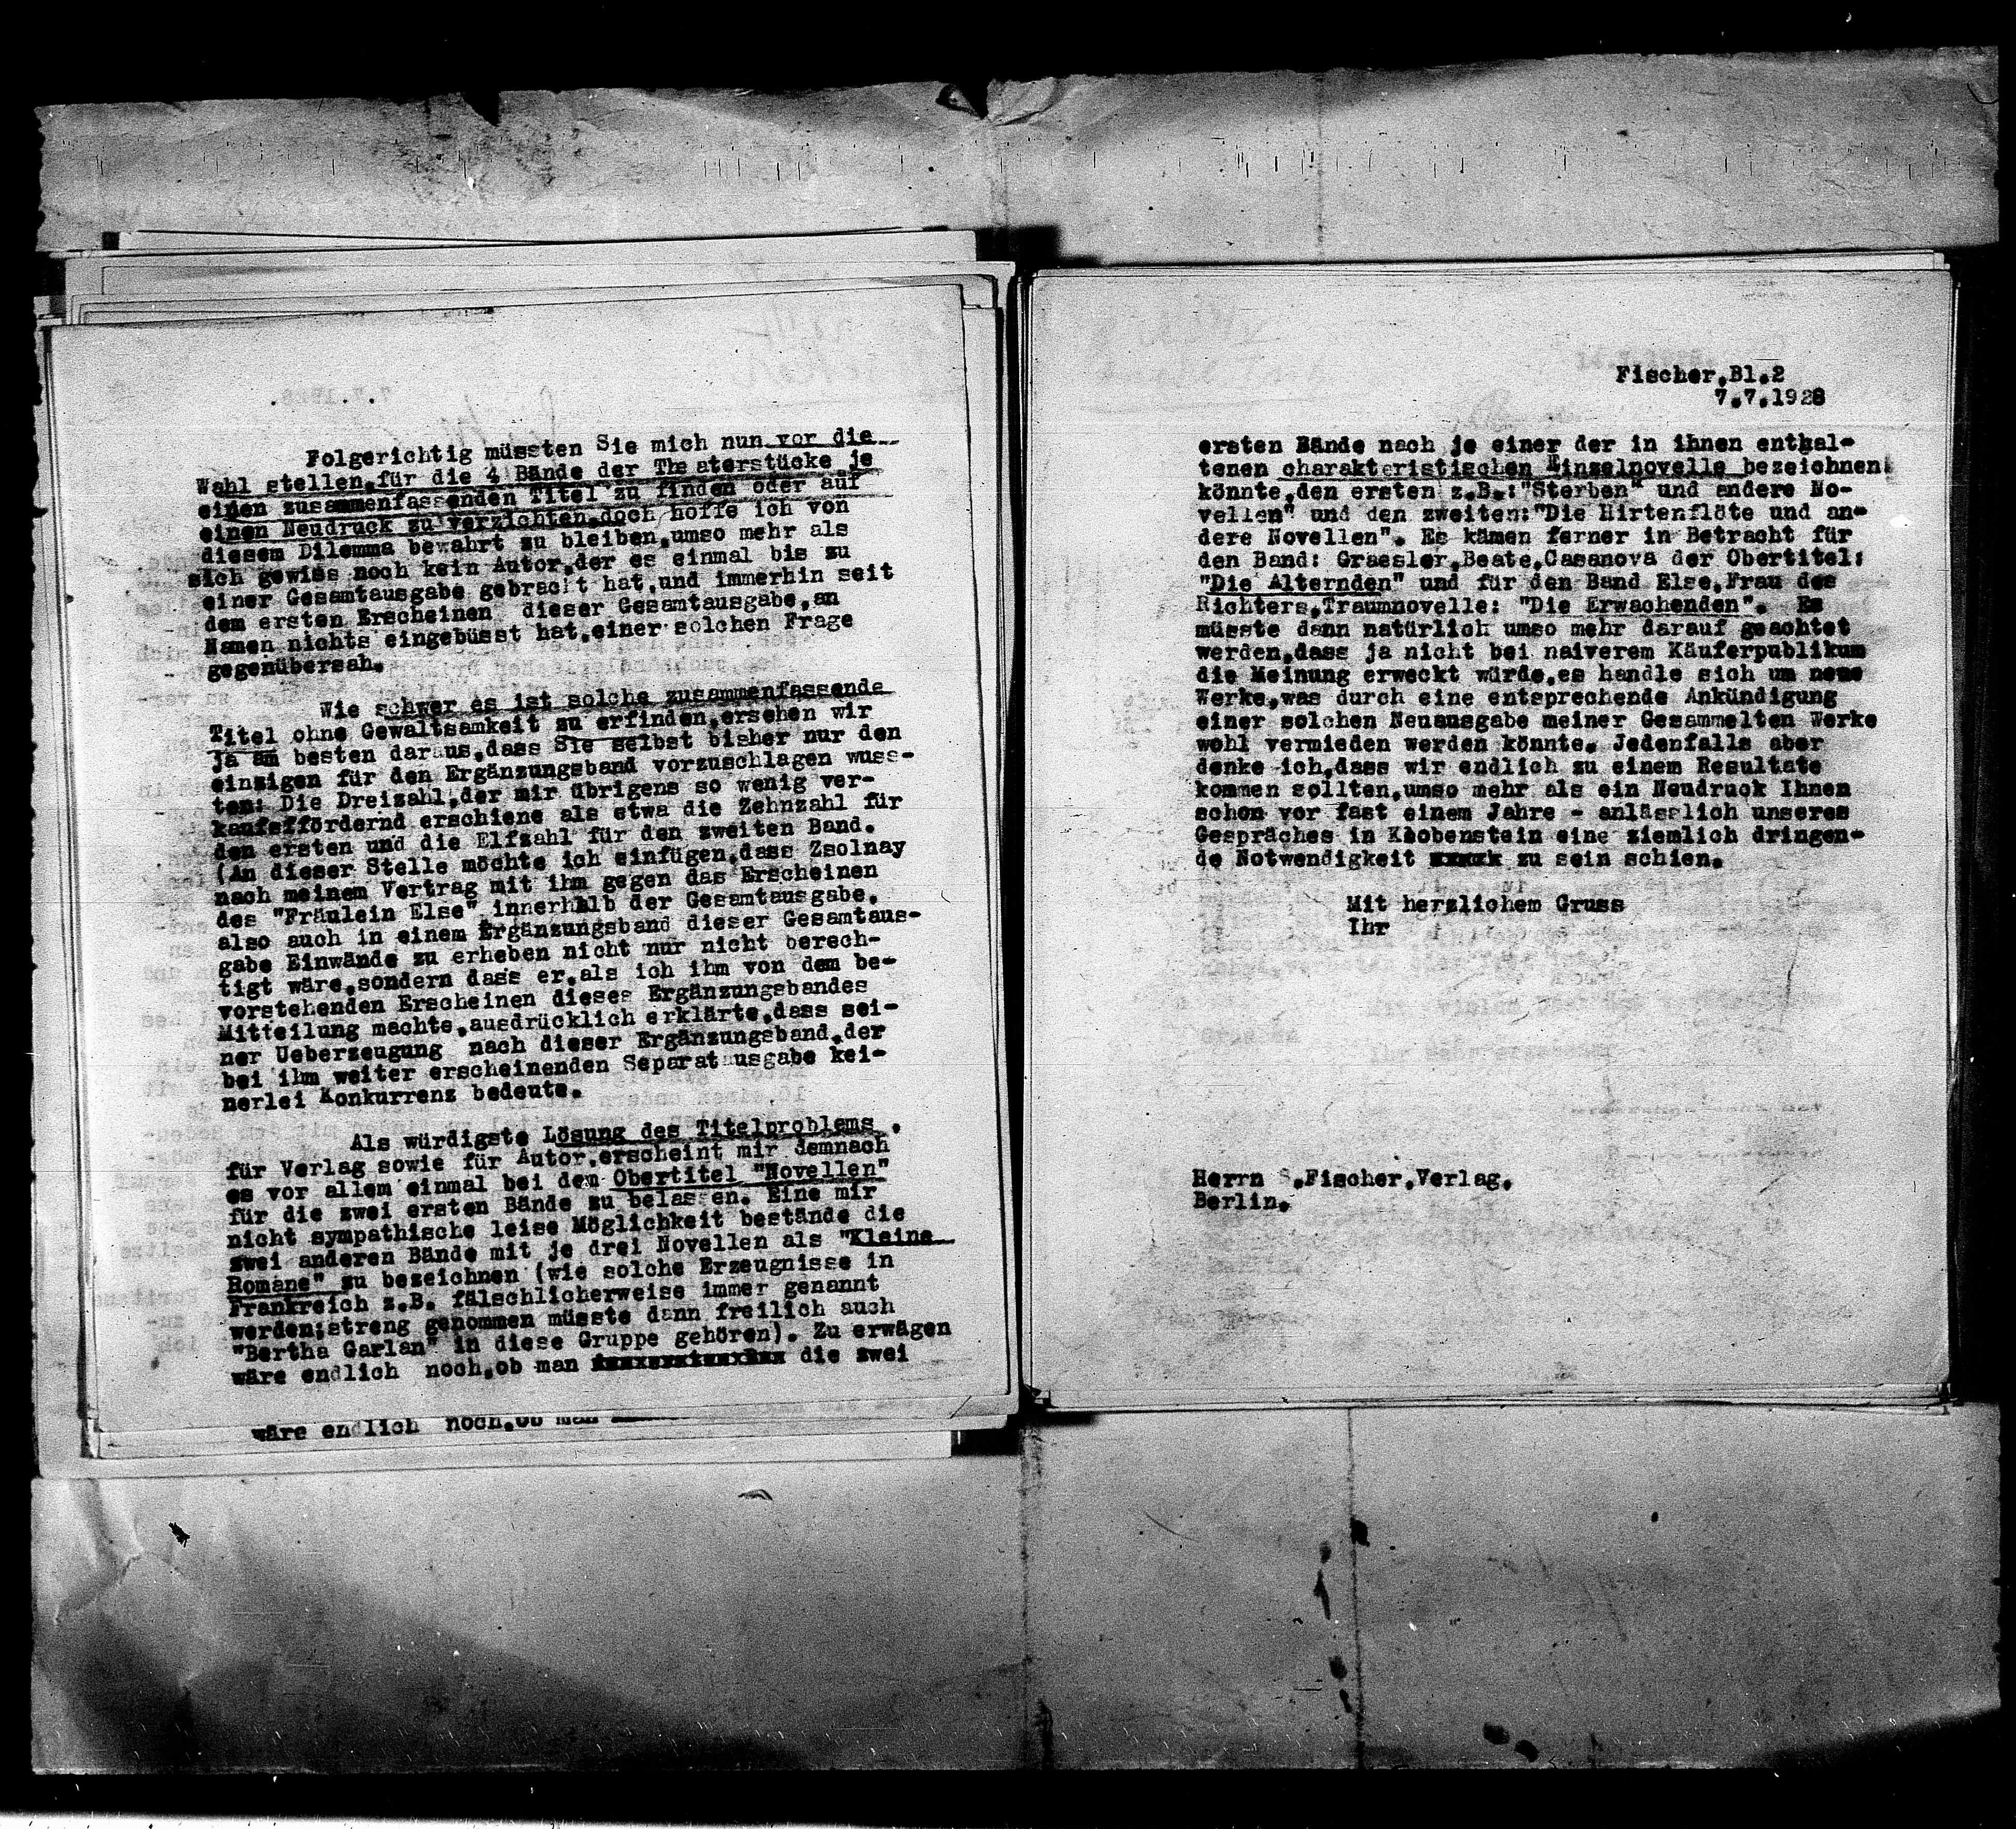 Folgerichtig müssten Sie mich nun vor die
Wahl stellen,für die 4 Bände der Theaterstücke je
einen zusammenfassenden Titel zu finden oder auf
einen Neudruck zu verzichten,doch hoffe ich von
diesem Dilemma bewahrt zu bleiben,umso mehr als
sich gewiss noch kein Autor,der es einmal bis zu
einer Gesamtausgabe gebracht hat,und immerhin seit
dem ersten Erscheinen dieser Gesamtausgabe,an
Namen nichts eingebüsst hat,einer solchen Frage
gegenübersah.
Wie schwer es ist solche zusammenfassende
Titel ohne Gewaltsamkeit zu erfinden,ersehen wir
ja am besten daraus,dass Sie selbst bisher nur den
einzigen für den Ergänzungsband vorzuschlagen wuss-
ten: Die Dreizahl,der mir übrigens so wenig ver-
kaufsffördernd erschiene als etwa die Zehnzahl für
den ersten und die Elfzahl für den zweiten Band.
(An dieser Stelle möchte ich einfügen,dass Zsolnay
nach meinem Vertrag mit ihm gegen das Erscheinen
des "Fräulein Else" innerhalb der Gesamtausgabe,
also auch in einem Ergänzungsband dieser Gesamtaus-
gabe Einwände zu erheben nicht nur nicht berech-
tigt wäre,sondern dass er,als ich ihm von dem be-
vorstehenden Erscheinen dieses Ergänzungsbandes
Mitteilung machte,ausdrücklich erklärte,dass sei-
ner Ueberzeugung nach dieser Ergänzungsband,der
bei ihm weiter erscheinenden Separatausgabe kei-
nerlei Konkurrenz bedeute.
Als würdigste Lösung des Titelproblems ,
für Verlag sowie für Autor,erscheint mir demnach
es vor allem einmal bei dem Obertitel "Novellen"
für die zwei ersten Bände zu belassen. Eine mir
nicht sympathische leise Möglichkeit bestände die
zwei anderen Bände mit je drei Novellen als "Kleine
Romane" zu bezeichnen (wie solche Erzeugnisse in
Frankreich z.B. fälschlicherweise immer genannt
werden;streng genommen müsste dann freilich auch
"Bertha Garlan" in diese Gruppe gehören). Zu erwägen
wäre endlich noch,ob man die zwei
wäre endlich noch,ob man
Fischer,Bl.2
7.7.1928
ersten Bände nach je einer der in ihnen enthal-
tenen charakteristischen Einzelnovelle bezeichnen
könnte,den ersten z.B.:"Sterben" und andere No-
vellen" und den zweiten:"Die Hirtenflöte und an-
dere Novellen". Es kämen ferner in Betracht für
den Band: Graesler,Beate,Casanova der Obertitel:
"Die Alternden" und für den Band Else,Frau des
Richters,Traumnovelle: "Die Erwachenden". Es
müsste dann natürlich umso mehr darauf geachtet
werden,dass ja nicht bei naiverem Käuferpublikum
die Meinung erweckt würde,es handle sich um neue
Werke,was durch eine entsprechende Ankündigung
einer solchen Neuausgabe meiner Gesammelten Werke
wohl vermieden werden könnte. Jedenfalls aber
denke ich,dass wir endlich zu einem Resultate
kommen sollten,umso mehr als ein Neudruck Ihnen
schon vor fast einem Jahre - anlässlich unseres
Gespräches in Klobenstein eine ziemlich dringen-
de Notwendigkeit zu sein schien.
Mit herzlichem Gruss
Ihr
Herrn S.Fischer,Verlag,
Berlin.